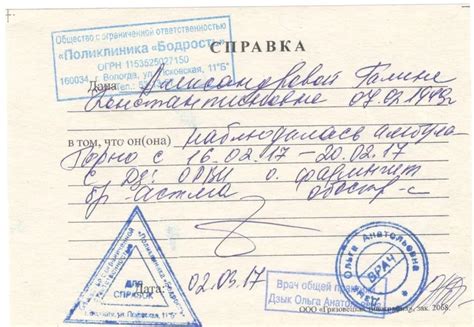 Общество с ограниченной ответственностью
«Поликлиника «Бодрость»
ОГРН 1153525027150
160034, г. Вологда, ул. Псковская, 11"Б"
СПРАВКА
Дана Александровой Галине
Константиновне 07.02.1949г
в том, что он(она) наблюдалась амбула
торно с 16.02.17 – 20.02.17
с Дз: ОРВИ о. фарингит
бр. астма обостр-е
"Поликлиника "Бодрость"
ДЛЯ
СПРАВОК
Дата: 02.03.17
Врач общей практики
Дзык Ольга Анатольевна
Дзык Ольга Анатольевна
ВРАЧ
ООО «Грязовецкая типография», зак. 2068.